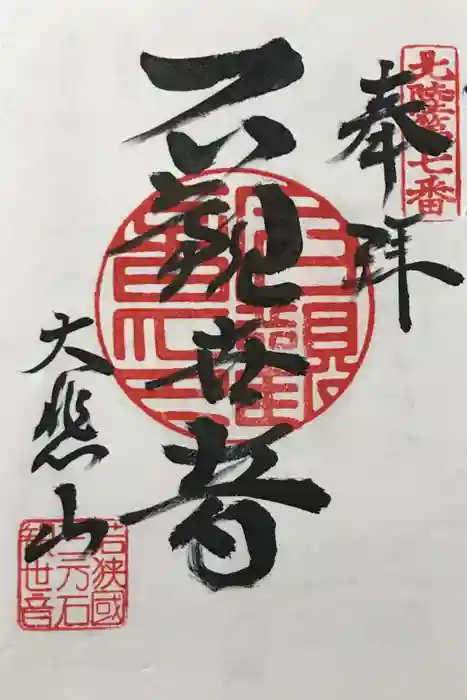 北陸第七番
奉拝
石観世音
大悲山
若狭國
三方石
観世音